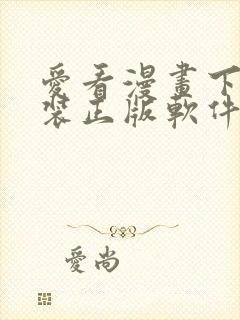 愛看漫畫下
裝正版軟件
愛尚